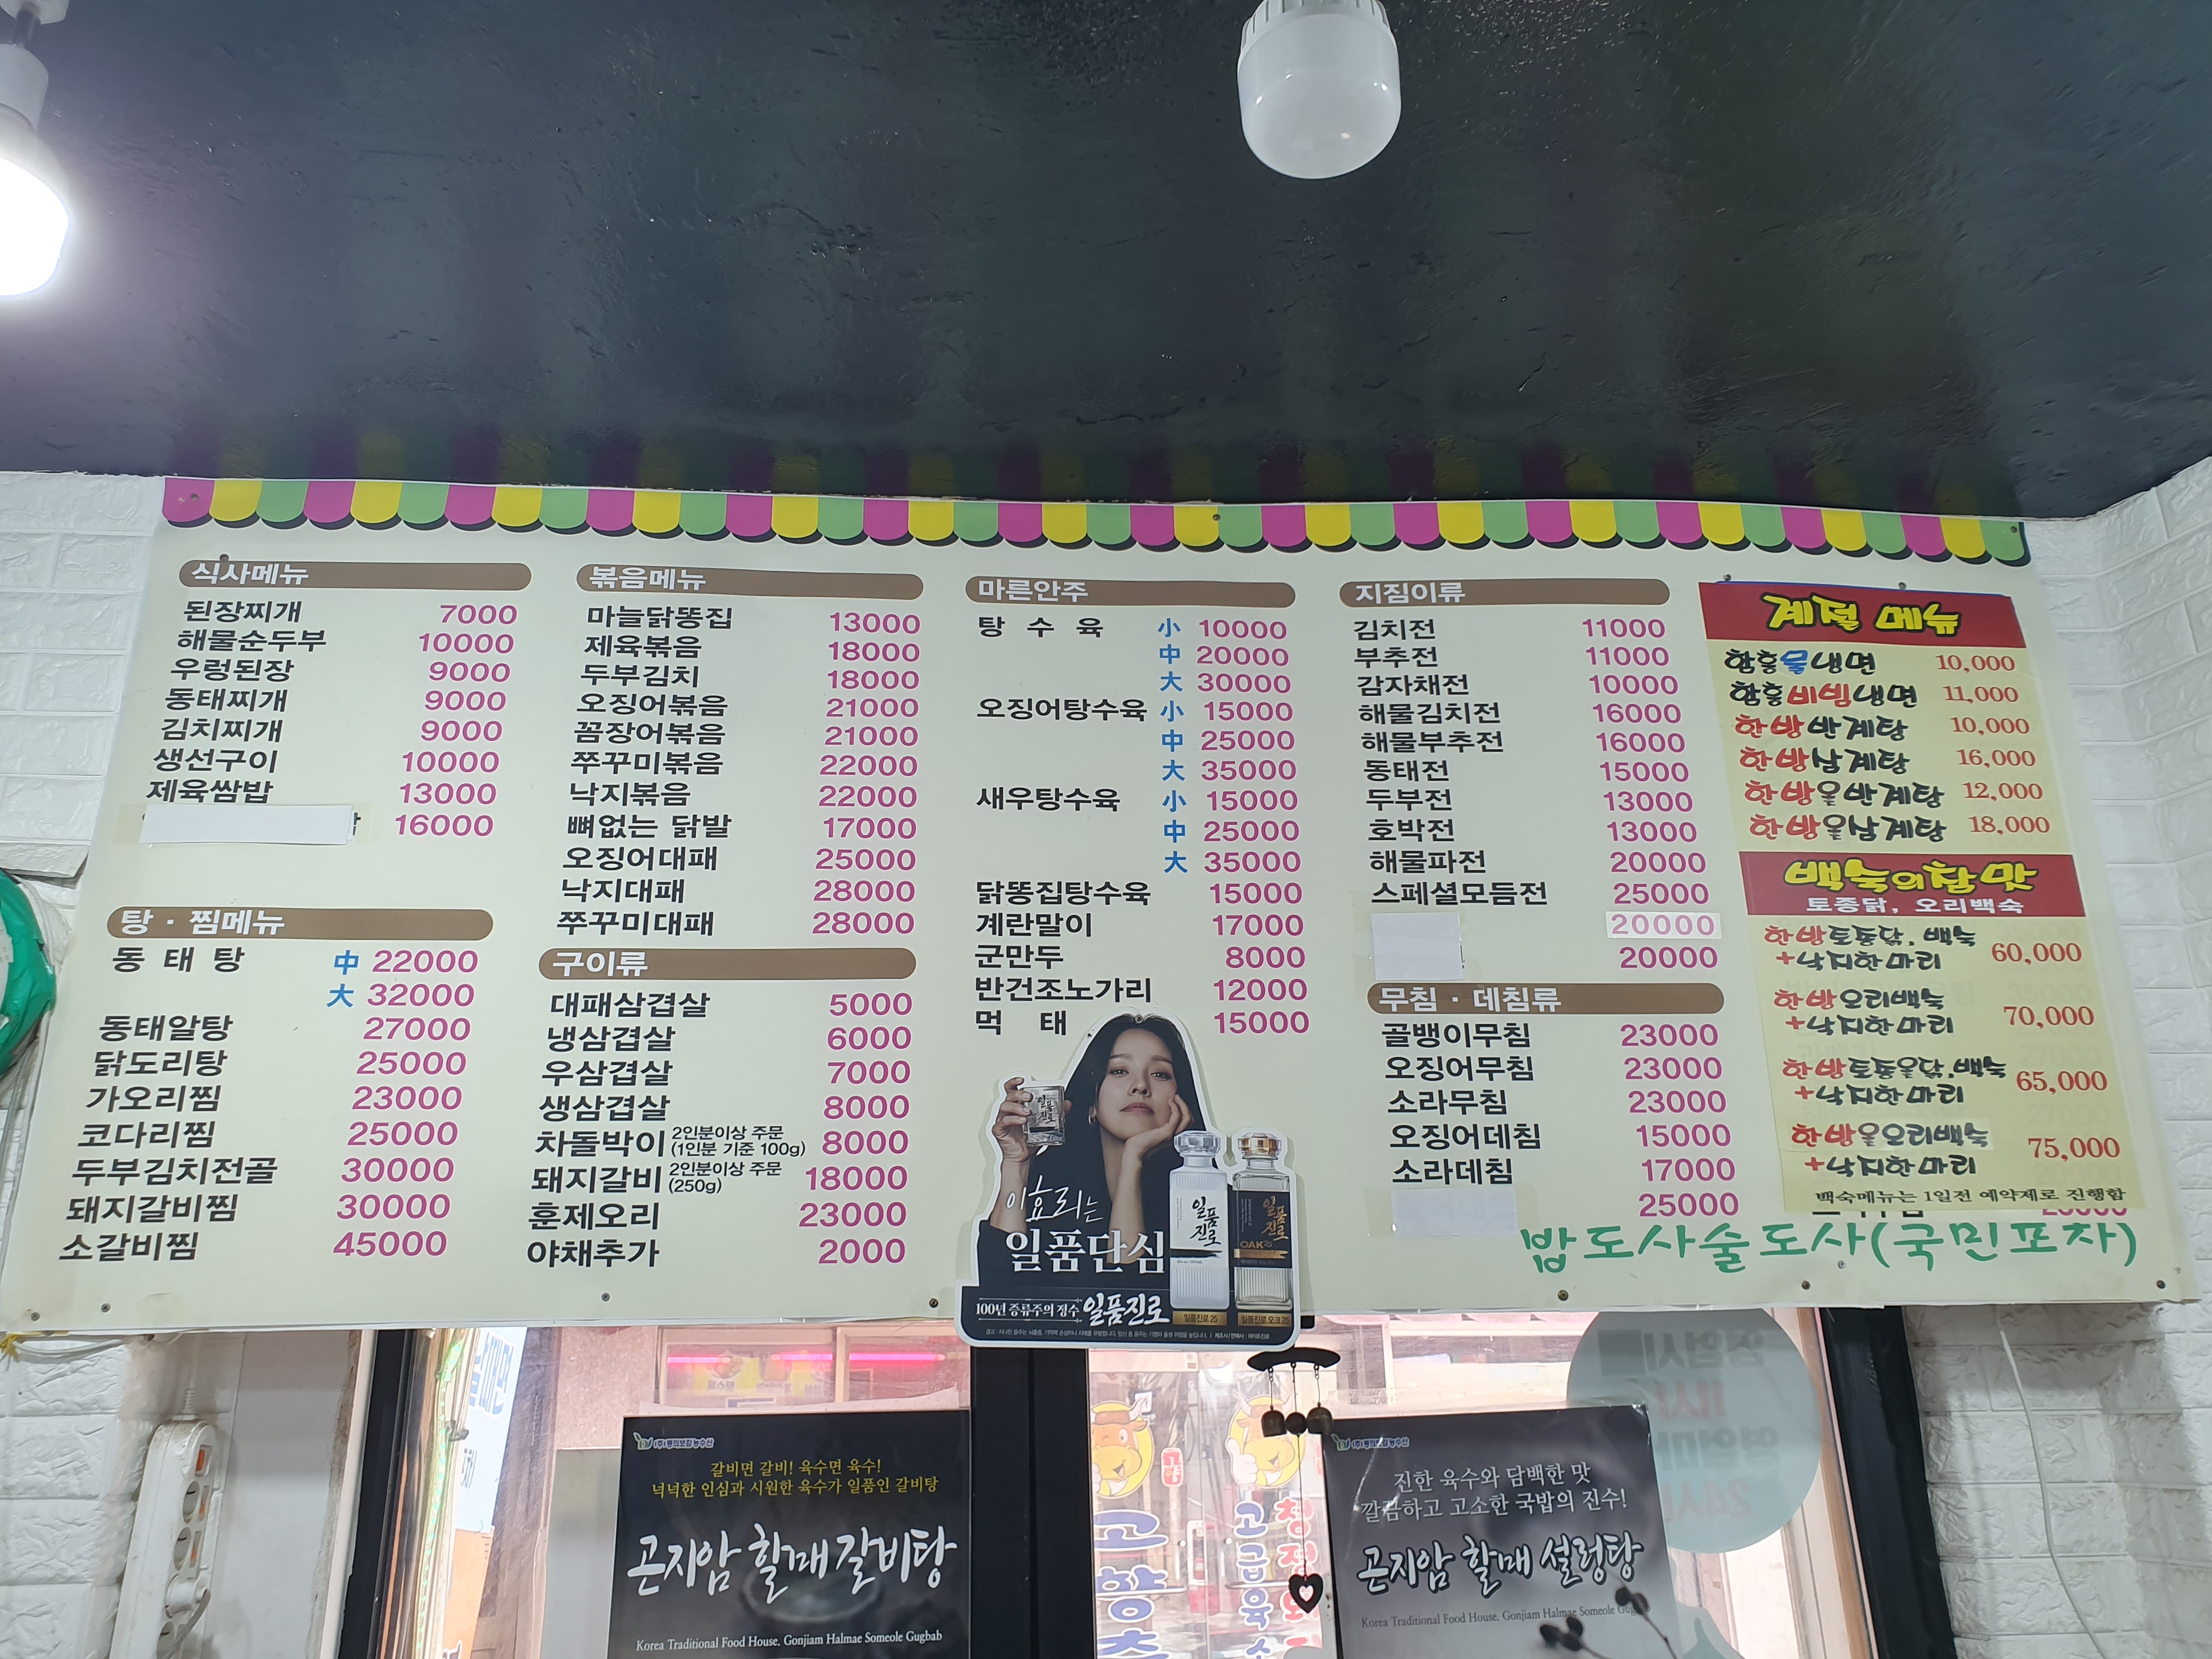 식사메뉴
된장찌개 7000
해물순두부 10000
우렁된장 9000
동태찌개 9000
김치찌개 9000
생선구이 10000
제육쌈밥 13000
16000
탕 · 찜메뉴
동 태 탕 中 22000
大 32000
동태알탕 27000
닭도리탕 25000
가오리찜 23000
코다리찜 25000
두부김치전골 30000
돼지갈비찜 30000
소갈비찜 45000
볶음메뉴
마늘닭똥집 13000
제육볶음 18000
두부김치 18000
오징어볶음 21000
꼼장어볶음 21000
쭈꾸미볶음 22000
낙지볶음 22000
뼈없는 닭발 17000
오징어대패 25000
낙지대패 28000
쭈꾸미대패 28000
구이류
대패삼겹살 5000
냉삼겹살 6000
우삼겹살 7000
생삼겹살 8000
차돌박이 2인분이상 주문 (1인분 기준 100g) 8000
돼지갈비 2인분이상 주문 (250g) 18000
훈제오리 23000
야채추가 2000
마른안주
탕 수 육 小 10000
中 20000
大 30000
오징어탕수육 小 15000
中 25000
大 35000
새우탕수육 小 15000
中 25000
大 35000
닭똥집탕수육 15000
계란말이 17000
군만두 8000
반건조노가리 12000
먹 태 15000
일품진로
이효리는
일품단심
100년 증류주의 정수 일품진로
일품진로
일품진로
OAK25
일품진로 25
일품진로 오크 25
지짐이류
김치전 11000
부추전 11000
감자채전 10000
해물김치전 16000
해물부추전 16000
동태전 15000
두부전 13000
호박전 13000
해물파전 20000
스페셜모듬전 25000
20000
20000
무침 · 데침류
골뱅이무침 23000
오징어무침 23000
소라무침 23000
오징어데침 15000
소라데침 17000
25000
계절 메뉴
함흥물냉면 10,000
함흥비빔냉면 11,000
한방반계탕 10,000
한방삼계탕 16,000
한방옻반계탕 12,000
한방옻삼계탕 18,000
백숙의참맛
토종닭, 오리백숙
한방토종닭.백숙
+낙지한마리 60,000
한방오리백숙
+낙지한마리 70,000
한방토종옻닭.백숙
+낙지한마리 65,000
한방옻오리백숙
+낙지한마리 75,000
백숙메뉴는 1일전 예약제로 진행함
밥도사술도사(국민포차)
갈비면 갈비! 육수면 육수!
넉넉한 인심과 시원한 육수가 일품인 갈비탕
곤지암 할매 갈비탕
Korea Traditional Food House, Gonjiam Halmae Someole Gugbab
진한 육수와 담백한 맛
깔끔하고 고소한 국밥의 진수!
곤지암 할매 설렁탕
Korea Traditional Food House, Gonjiam Halmae Someole